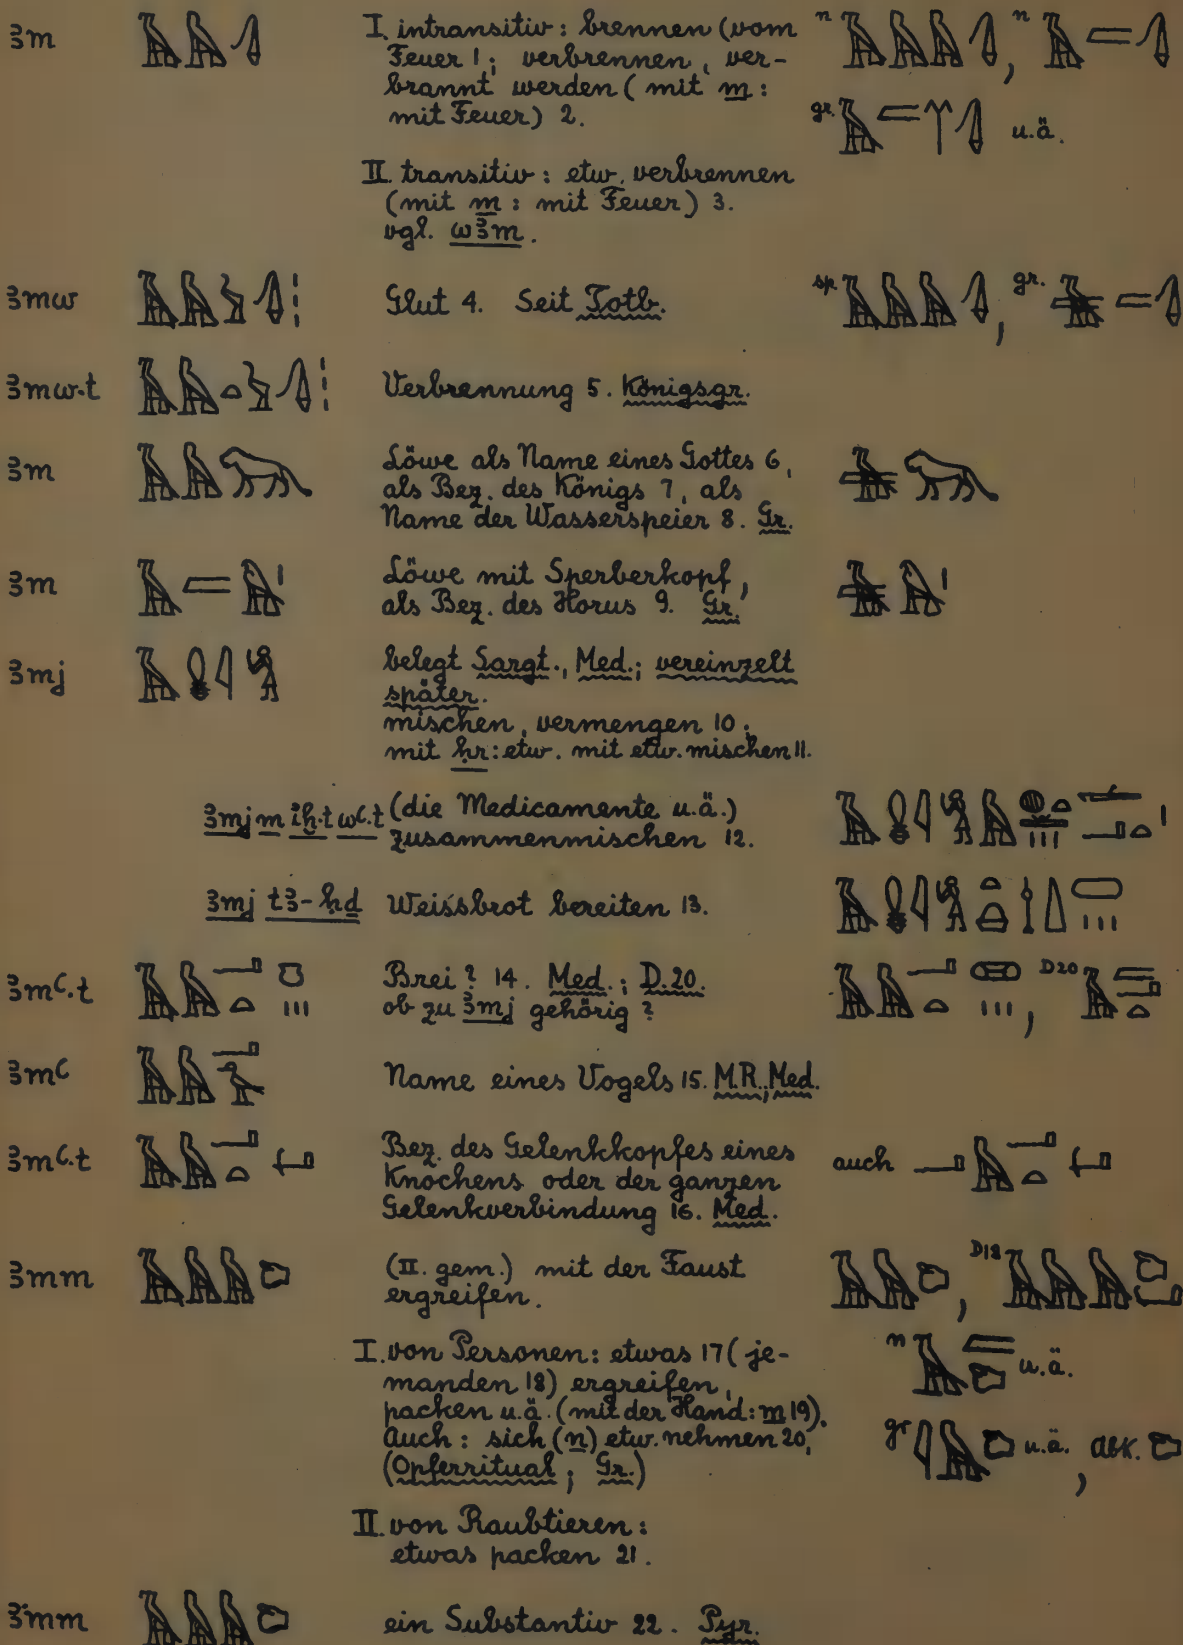 ꜣm I. intransitiv : brennen (vom n , n
Feuer 1 ; verbrennen , ver-
brannt werden ( mit m : gr. u.ä.
mit Feuer) 2.
II. transitiv : etw. verbrennen
(mit m : mit Feuer) 3.
vgl. wꜣm .
ꜣmw Glut 4. Seit Totb. sp. , gr.
ꜣmw.t Verbrennung 5. Königsgr.
ꜣm Löwe als Name eines Gottes 6 ,
als Bez. des Königs 7 , als
Name der Wasserspeier 8. Gr.
ꜣm Löwe mit Sperberkopf ,
als Bez. des Horus 9. Gr.
ꜣmj belegt Sargt., Med.; vereinzelt
später.
mischen , vermengen 10 ;
mit ḥr : etw. mit etw. mischen 11.
ꜣmj m iḫ.t wꜥ.t (die Medicamente u.ä.)
zusammenmischen 12.
ꜣmj tꜣ-ḥḏ Weissbrot bereiten 13.
ꜣmꜥ.t Brei ? 14. Med. ; D.20. , D20
ob zu ꜣmj gehörig ?
ꜣmꜥ Name eines Vogels 15. M.R.; Med.
ꜣmꜥ.t Bez. des Gelenkkopfes eines auch
Knochens oder der ganzen
Gelenkverbindung 16. Med.
ꜣmm (II. gem.) mit der Faust , D18
ergreifen .
I. von Personen : etwas 17 ( je- n u.ä.
manden 18) ergreifen ,
packen u.ä. (mit der Hand : m 19).
Auch : sich (n) etw. nehmen 20, gr u.ä. , abk.
(Opferritual ; Gr.)
II. von Raubtieren :
etwas packen 21 .
ꜣmm ein Substantiv 22 . Pyr.